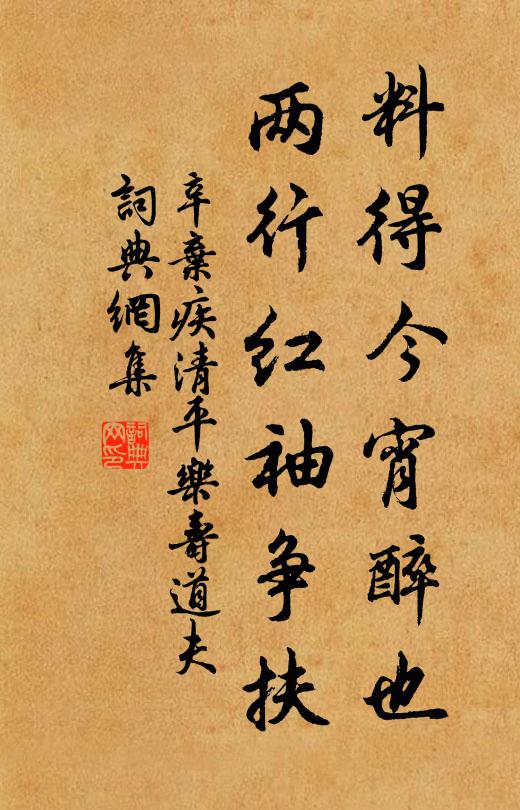 料得今宵醉也
两行红袖争扶
辛棄疾清平樂壽道夫
詞典網集
詞典网印